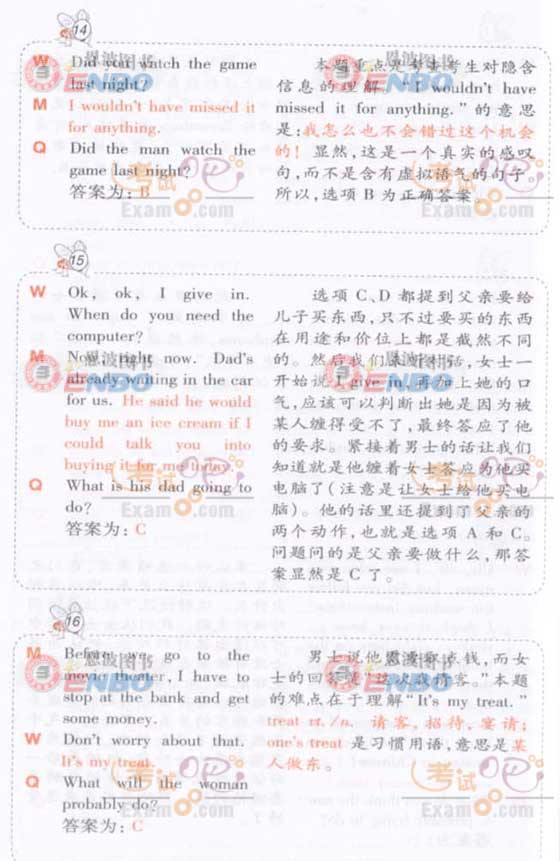 14
W Did you watch the game
last night?
M I wouldn't have missed it
for anything.
Q Did the man watch the
game last night?
答案为：B
本题重点是考查考生对隐含
信息的理解。"I wouldn't have
missed it for anything."的意思
是：我怎么也不会错过这个机会
的！显然，这是一个真实的感叹
句，而不是含有虚拟语气的句子。
所以，选项 B 为正确答案。
15
W Ok, ok, I give in.
When do you need the
computer?
M Now, right now. Dad's
already waiting in the car
for us. He said he would
buy me an ice cream if I
could talk you into
buying it for me today.
Q What is his dad going to
do?
答案为：C
选项 C、D 都提到父亲要给
儿子买东西，只不过要买的东西
在用途和价位上都是截然不同
的。然后我们听对话，女士一
开始说 I give in，再加上她的口
气，应该可以判断出她是因为被
某人缠得受不了，最终答应了他
的要求。紧接着男士的话让我们
知道就是他缠着女士答应为他买
电脑了（注意是让女士给他买电
脑）。他的话里还提到了父亲的
两个动作，也就是选项 A 和 C。
问题问的是父亲要做什么，那答
案显然是 C 了。
16
M Before we go to the
movie theater, I have to
stop at the bank and get
some money.
W Don't worry about that.
It's my treat.
Q What will the woman
probably do?
答案为：C
男士说他要去取点钱，而女
士的回答是"这次我请客。"本题
的难点在于理解"It's my treat."
treat vt./n. 请客，招待，宴请；
one's treat 是习惯用语，意思是某
人做东。
恩波图书
ENBO
考试吧
Exam8.com